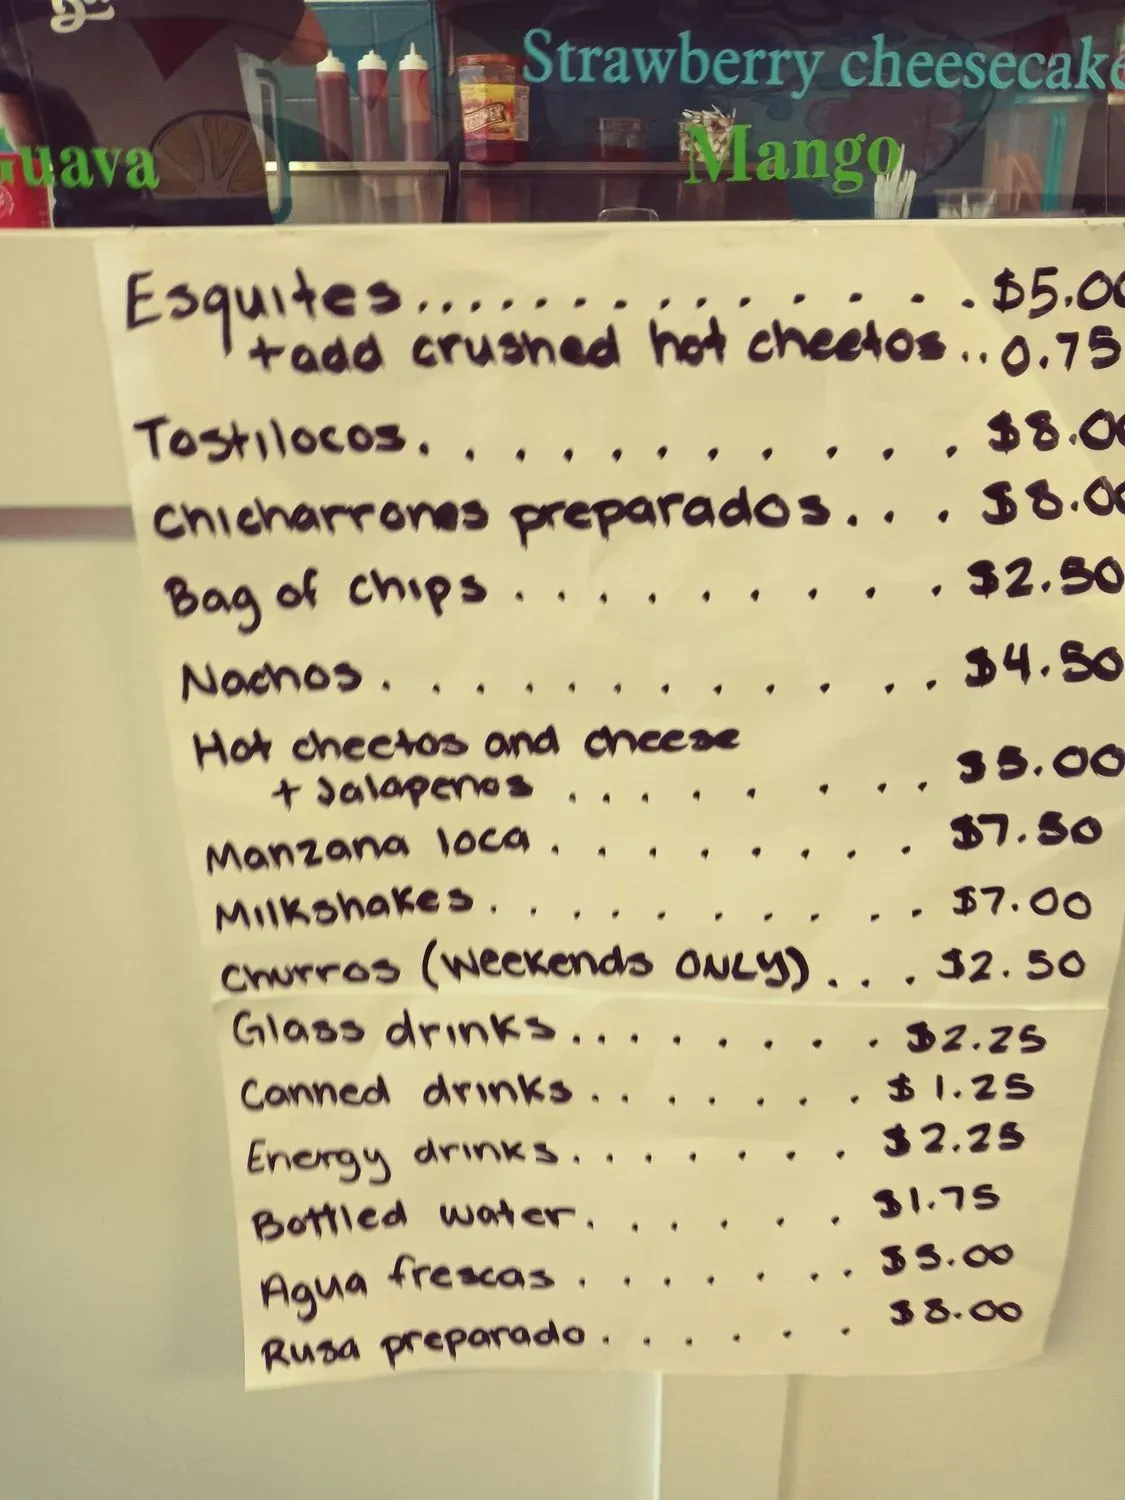 Strawberry cheesecake
Guava
Mango
Esquites.............. $5.00
+add crushed hot cheetos..0.75
Tostilocos........... $8.00
Chicharrones preparados... $8.00
Bag of chips......... $2.50
Nachos............ $4.50
Hot cheetos and cheese
+ Jalapenos........ $5.00
Manzana loca........ $7.50
Milkshakes......... $7.00
Churros (Weekends ONLY)... $2.50
Glass drinks........ $2.25
Canned drinks....... $1.25
Energy drinks....... $2.25
Bottled water...... $1.75
Agua frescas....... $5.00
Rusa preparado...... $8.00